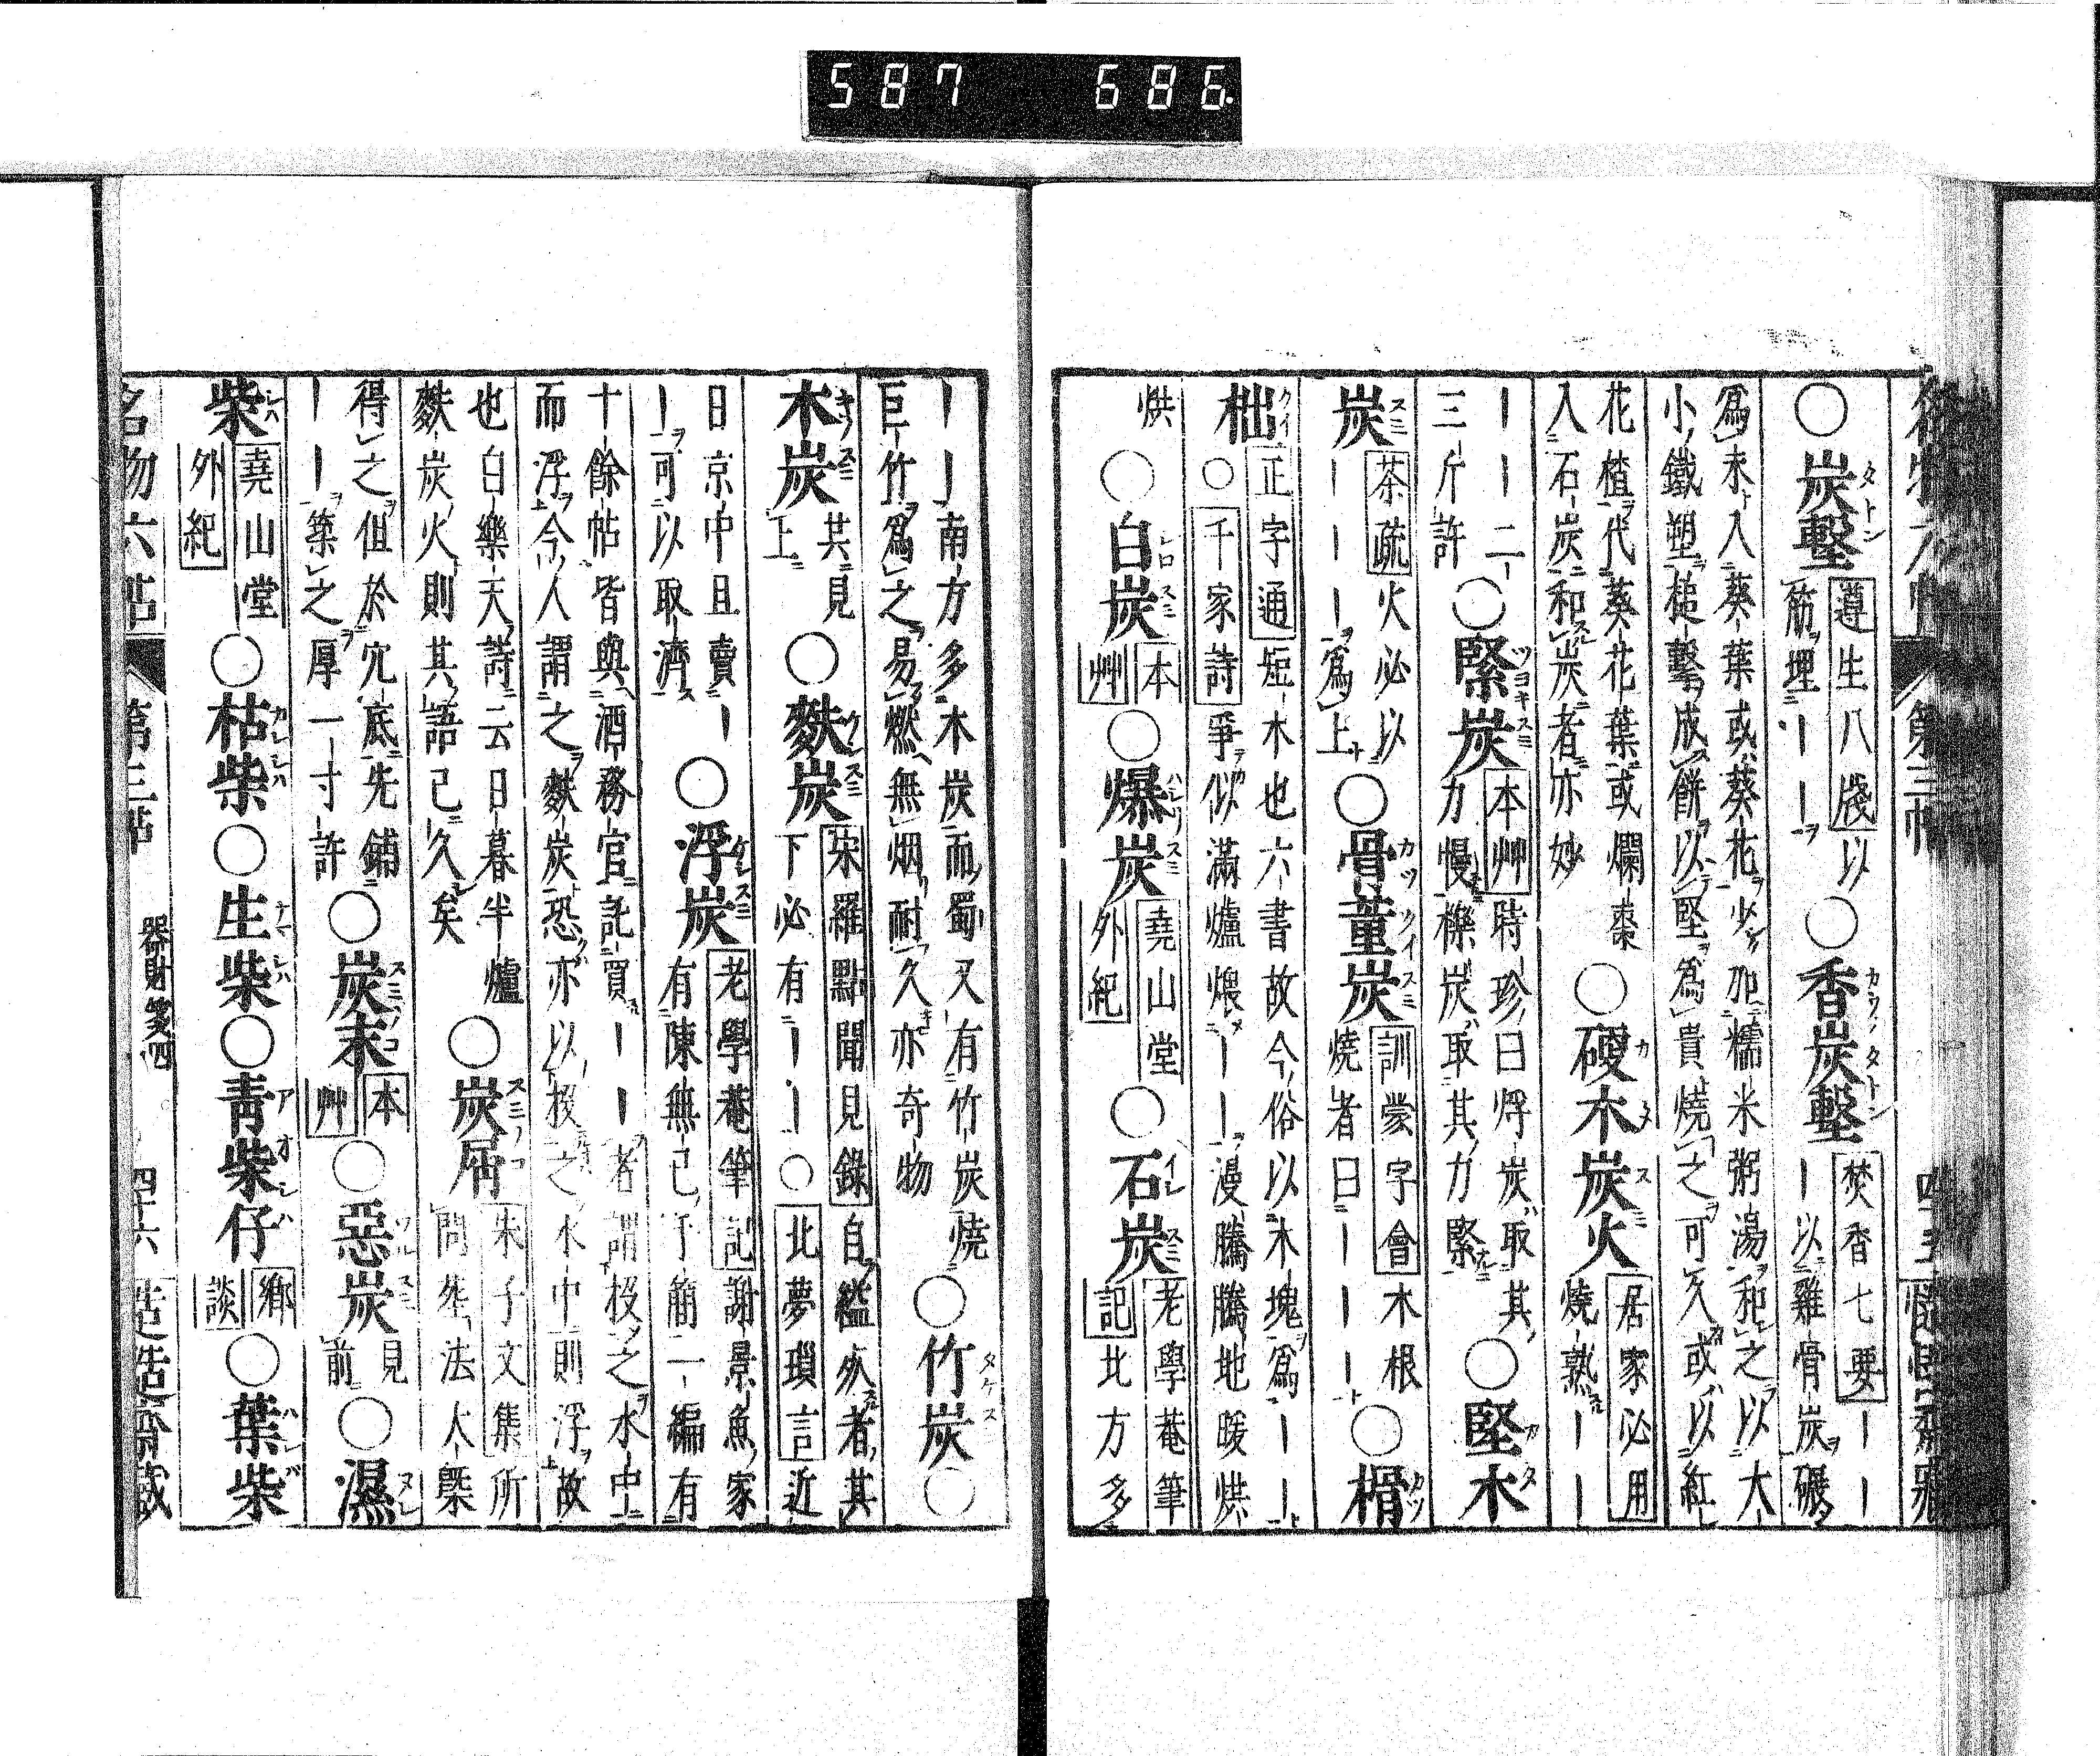 587 686
第三帖
〇炭墼 遵生八牋以
筯埋――
〇香炭墼 焚香七要――
―以雞骨炭碾
爲末入葵葉或葵花少加糯米粥湯和之以大
小鐵塑槌擊成餅以堅爲貴燒之可久或以紅
花楂代葵花葉或爛棗
入石炭和炭者亦妙
〇硬木炭火 居家必用
燒熟――
――二
三斤許
〇緊炭 本艸時珍曰烰炭取其
力慢櫟炭取其力緊
〇堅木
炭 茶疏火必以
―――爲上
〇骨董炭 訓蒙字會木根
燒者曰―――
〇榾
柮 正字通短木也六書故今俗以木塊爲――
〇千家詩爭似滿爐煨――漫騰騰地暖烘
烘
〇白炭 本艸
〇爆炭 堯山堂
外紀
〇石炭 老學菴筆
記北方多
――南方多木炭而蜀又有竹炭燒
巨竹爲之易燃無烟耐久亦奇物
〇竹炭〇
木炭 其見
上
〇麩炭 宋羅點聞見錄自縊死者其
下必有――〇北夢瑣言近
日京中且賣―
―可以取濟
〇浮炭 老學菴筆記謝景魚家
有陳無己手簡一編有
十餘帖皆與酒務官託買――者謂投之水中
而浮今人謂之麩炭恐亦以投之水中則浮故
也白樂天詩云日暮半爐
麩炭火則其語已久矣
〇炭屑 朱子文集所
問葬法人槩
得之但於穴底先鋪
―――築之厚一寸許
〇炭末 本
艸
〇惡炭 見
前
〇濕
柴 堯山堂
外紀
〇枯柴〇生柴〇青柴仔 鄉
談
〇葉柴
名物六帖 第三帖 器財箋四 四十六